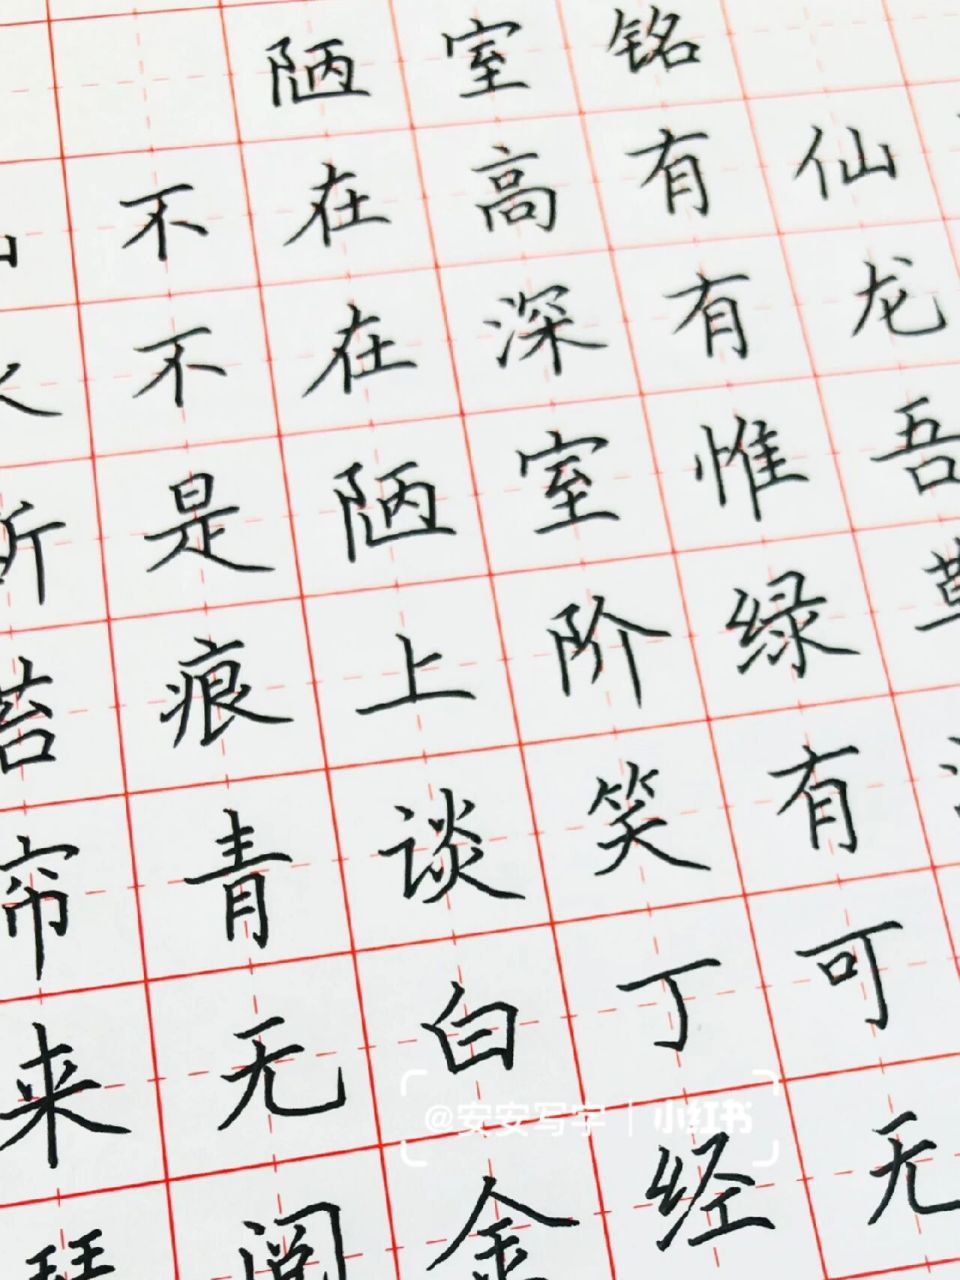 陋室铭
不在高有仙
不在深有龙
是陋室惟吾
苔痕上阶绿草
帘青谈笑有
来无白丁可
阅金经无
@安安写字 | 小红书